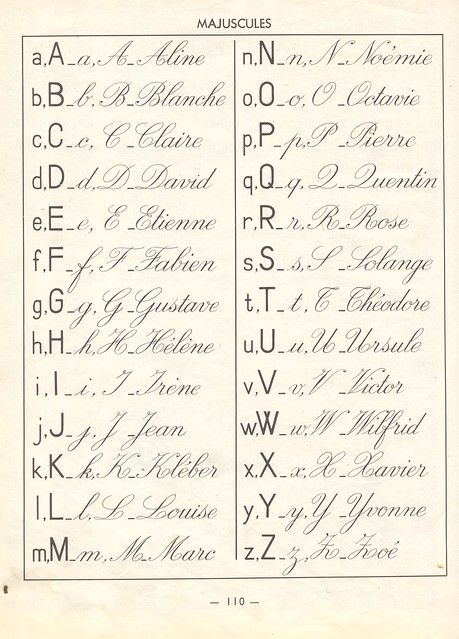 MAJUSCULES
a, A _ a, A _ Aline
b, B _ b, B _ Blanche
c, C _ c, C _ Claire
d, D _ d, D _ David
e, E _ e, E _ Etienne
f, F _ f, F _ Fabien
g, G _ g, G _ Gustave
h, H _ h, H _ Hélène
i, I _ i, I _ Irène
j, J _ j, J _ Jean
k, K _ k, K _ Kléber
l, L _ l, L _ Louise
m, M _ m, M _ Marc
n, N _ n, N _ Noémie
o, O _ o, O _ Octavie
p, P _ p, P _ Pierre
q, Q _ q, Q _ Quentin
r, R _ r, R _ Rose
s, S _ s, S _ Solange
t, T _ t, T _ Théodore
u, U _ u, U _ Ursule
v, V _ v, V _ Victor
w, W _ w, W _ Wilfrid
x, X _ x, X _ Xavier
y, Y _ y, Y _ Yvonne
z, Z _ z, Z _ Zoé
— 110 —